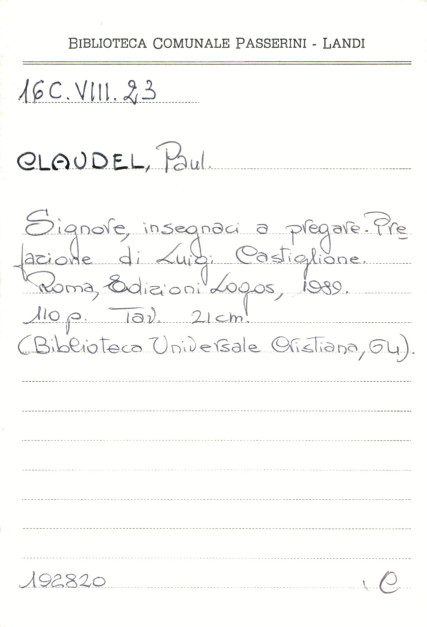 BIBLIOTECA COMUNALE PASSERINI - LANDI
16C.VIII.23
CLAUDEL, Paul.
Signore, insegnaci a pregare. Pre
fazione di Luigi Castiglione.
Roma, Edizioni Logos, 1989.
110 p. Tav. 21 cm.
(Biblioteca Universale Cristiana, 64).
192820 C